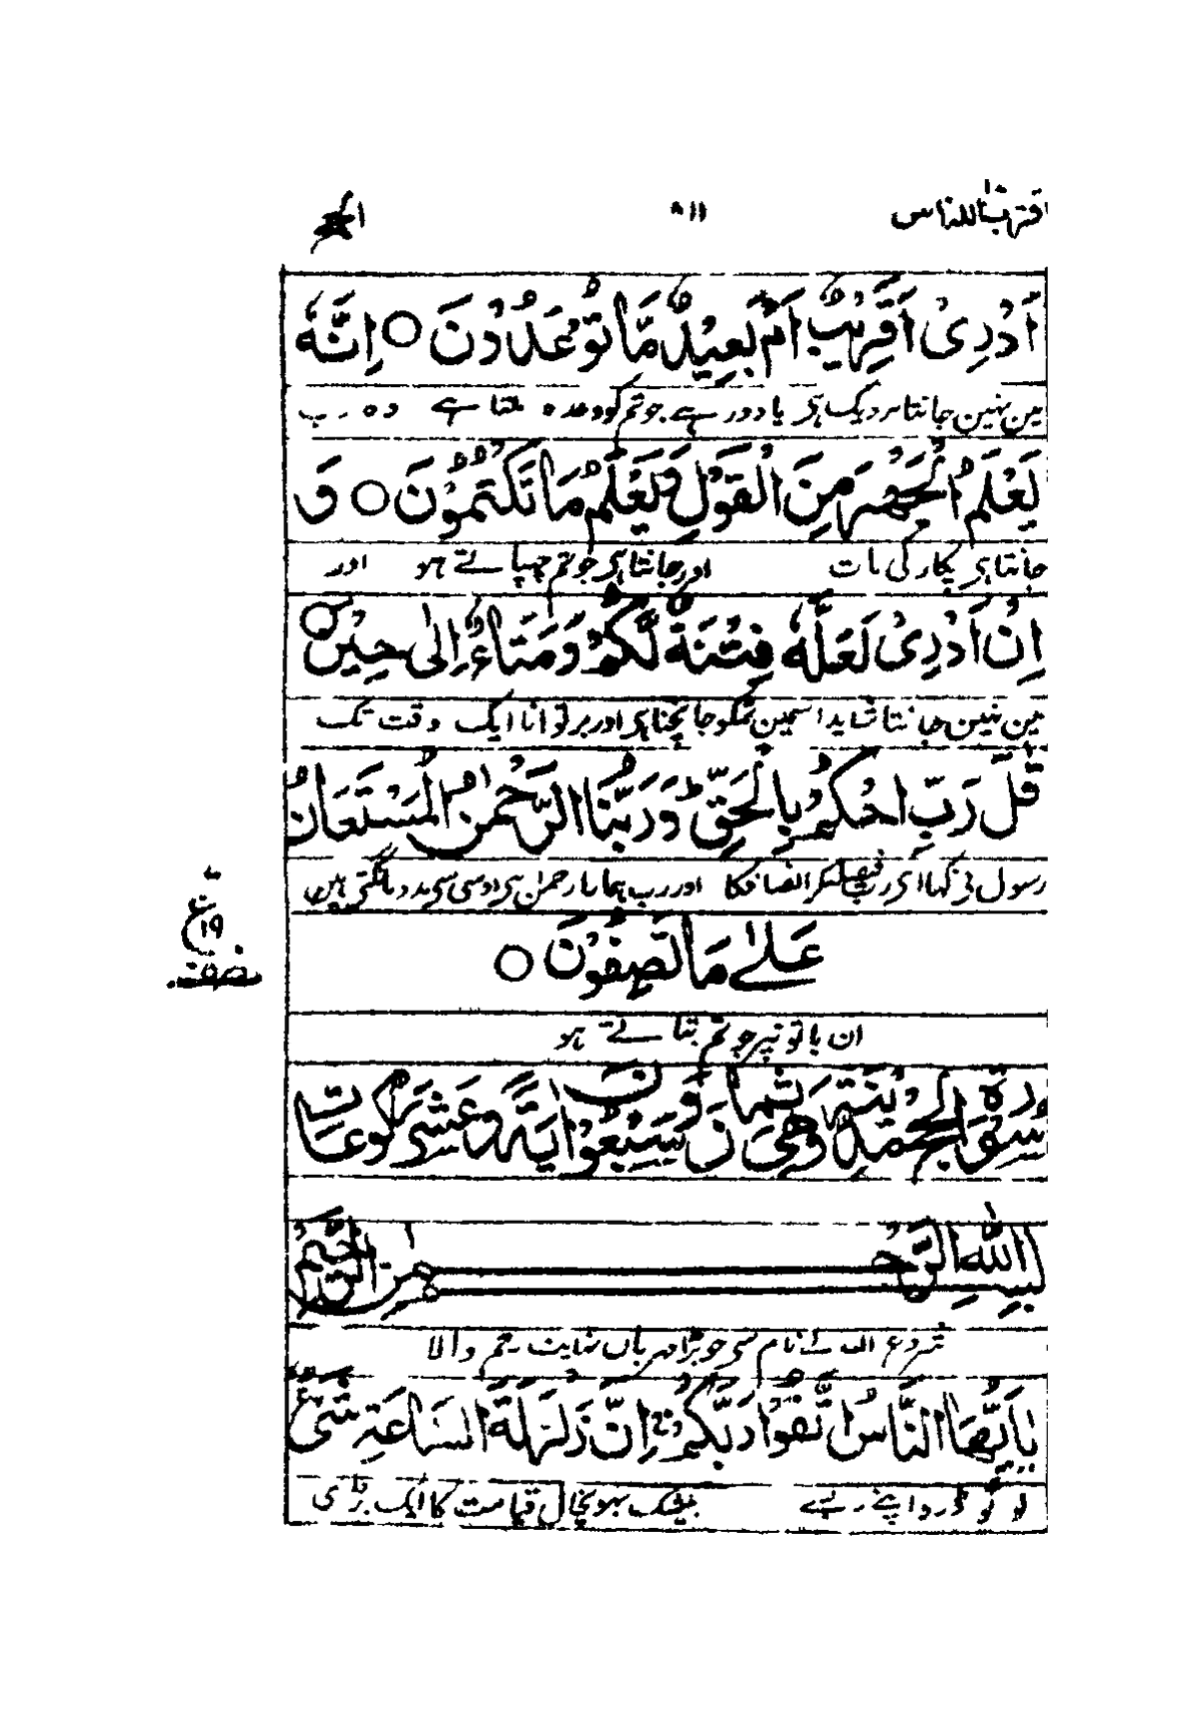 اقترب للناس ۵۱۱ الحج
اَدْرِىْ اَقَرِيْبٌ اَمْ بَعِيْدٌ مَّا تُوْعَدُوْنَ ○ اِنَّهٗ
مین نہین جانتا نزدیک ہی یا دور ہے جو تمکو وعدہ ملتا ہے وہ رب
يَعْلَمُ الْجَهْرَ مِنَ الْقَوْلِ وَيَعْلَمُ مَا تَكْتُمُوْنَ ○ وَ
جانتا ہی پکار کی بات اور جانتا ہی جو تم چھپاتے ہو اور
اِنْ اَدْرِىْ لَعَلَّهٗ فِتْنَةٌ لَّكُمْ وَمَتَاعٌ اِلٰى حِيْنٍ ○
مین نہین جانتا شاید اسمین تمکو جانچنا ہی اور برتوانا ایک وقت تک
قٰلَ رَبِّ احْكُمْ بِالْحَقِّ ؕ وَرَبُّنَا الرَّحْمٰنُ الْمُسْتَعَانُ
رسول نی کہا ای رب فیصلہ کر انصاف کا اور رب ہمارا رحمٰن ہی اوسی سی مدد مانگتی ہین
عَلٰى مَا تَصِفُوْنَ ○
ع ١٩
ان باتونپر جو تم بتاتے ہو
سُوْرَةُ الْحَجِّ مَدَنِيَّةٌ وَّهِىَ ثَمَانٌ وَّسَبْعُوْنَ اٰيَةً وَّعَشْرُ رُكُوْعَاتٍ
بِسْمِ اللّٰهِ الرَّحْمٰنِ الرَّحِيْمِ
شروع اللہ کے نام سی جو بڑا مہربان نہایت رحم والا
يٰاَيُّهَا النَّاسُ اتَّقُوْا رَبَّكُمْ ۚ اِنَّ زَلْزَلَةَ السَّاعَةِ شَىْءٌ
لوگو ڈرو اپنے رب سے بیشک بھونچال قیامت کا ایک بڑی